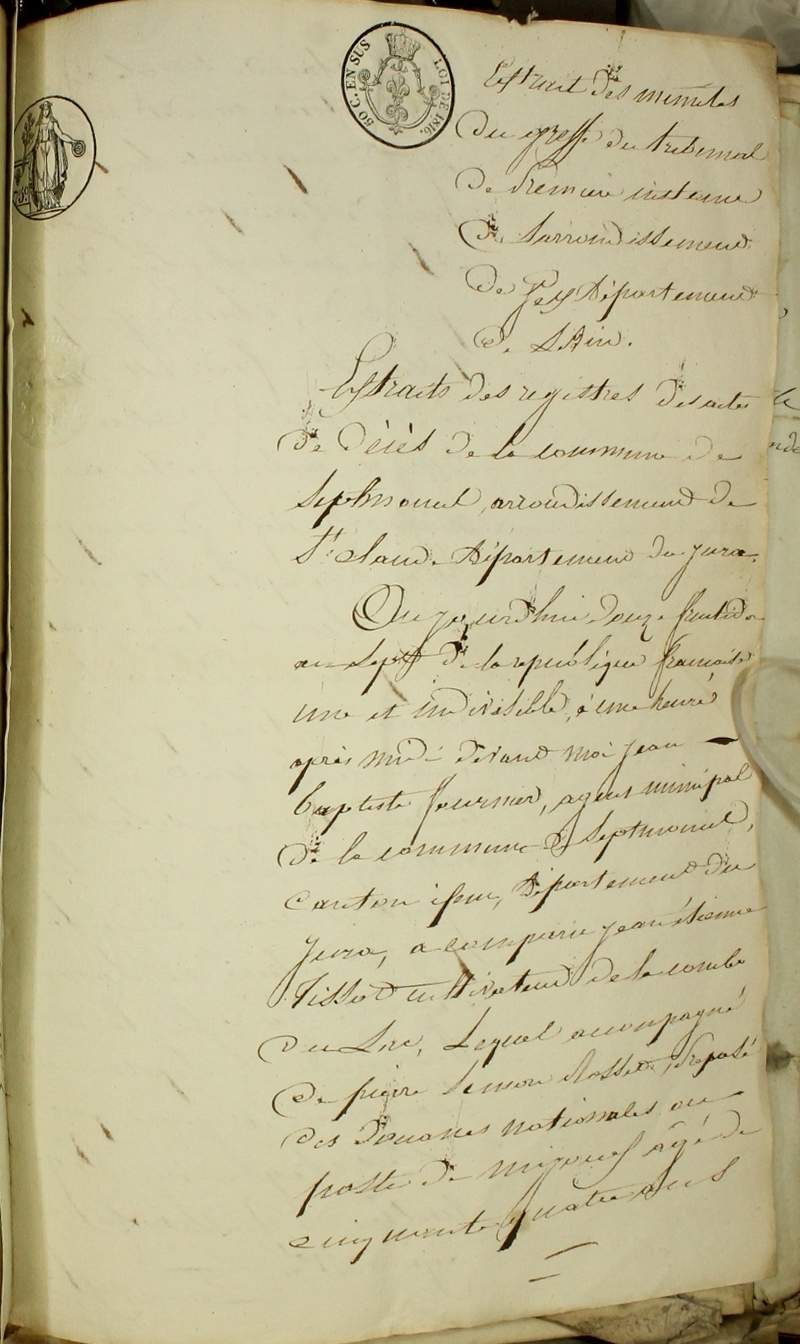 50 C. EN SUS LOI DE 1816.
Extrait des minutes
du greffe du tribunal
de premiere instance
de Larrondissement
de Gex Département
de LAin.
Extraits des registres des actes
de décès de la commune de
Septmoncel, arrondissement de
St. Claude Département du jura.
Aujourdhui douze fructidor
an Sept de la république francaise
une et indivisible, à une heure
après midi devant moi jean
baptiste fournier, agent municipal
de la commune de Septmoncel,
canton idem, Département du
jura, a comparu jean étienne
Tissot cultivateur de la combe
du Lac, Lequel accompagné
de pierre Simon Rosset, préposé
des Douanes nationales au
poste de mijoux agé de
cinquante quatre ans